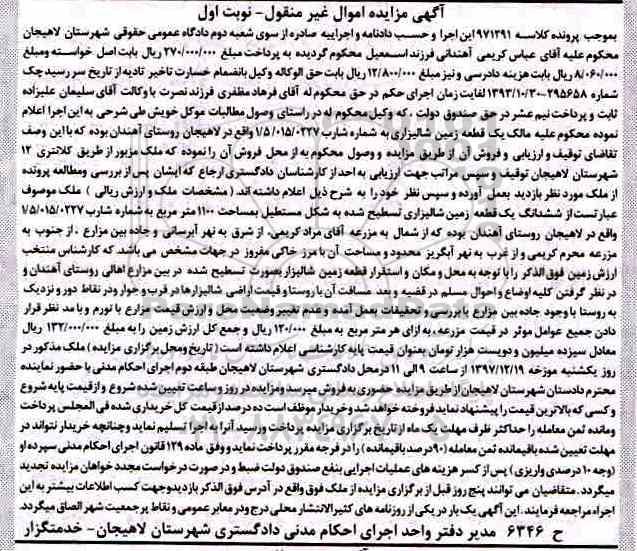 آگهی مزایده اموال غیر منقول- نوبت اول
بموجب پرونده کلاسه ۹۷۱۲۹۱ این اجرا و حسب دادنامه و اجراییه صادره از سوی شعبه دوم دادگاه عمومی حقوقی شهرستان لاهیجان
محکوم علیه آقای عباس کریمی آهندانی فرزند اسمعیل محکوم گردیده به پرداخت مبلغ ۲۷۰/۰۰۰/۰۰۰ ریال بابت اصل خواسته ومبلغ
۸/۰۶۰/۰۰۰ ریال بابت هزینه دادرسی و نیز مبلغ ۱۲/۸۰۰/۰۰۰ ریال بابت حق الوکاله وکیل بانضمام خسارت تاخیر تادیه از تاریخ سررسید چک
شماره ۲۹۵۶۵۸-۱۳۹۳/۱۰/۳۰ لغایت زمان اجرای حکم در حق محکوم له آقای فرهاد مظفری فرزند نصرت با وکالت آقای سلیمان علیزاده
ثابت و پرداخت نیم عشر در حق صندوق دولت ، که وکیل محکوم له در راستای وصول مطالبات موکل خویش طی شرحی به این اجرا اعلام
نموده محکوم علیه مالک یک قطعه زمین شالیزاری به شماره شارب ۱/۵/۰۱۵/۰۲۲۷ واقع در لاهیجان روستای آهندان بوده که با این وصف
تقاضای توقیف و ارزیابی و فروش آن از طریق مزایده و وصول محکوم به از محل فروش آن را نموده که ملک مزبور از طریق کلانتری ۱۲
شهرستان لاهیجان توقیف و سپس مراتب جهت ارزیابی به احد از کارشناسان دادگستری ارجاع که ایشان پس از بررسی ومطالعه پرونده
از ملک مورد نظر بازدید بعمل آورده و سپس نظر خود را به شرح ذیل اعلام داشته اند. ( مشخصات ملک و ارزش ریالی ) ملک موصوف
عبارتست از ششدانگ یک قطعه زمین شالیزاری تسطیح شده به شکل مستطیل بمساحت ۱۱۰۰ متر مربع به شماره شارب ۱/۵/۰۱۵/۰۲۲۷
واقع در لاهیجان روستای آهندان بوده که از شمال به مزرعه آقای مراد کریمی، از شرق به نهر آبرسانی و جاده بین مزارع ، از جنوب به
مزرعه محرم کریمی و از غرب به نهر آبگریز محدود و مساحت آن با مرز خاکی مفروز در جهات مشخص می باشد. که کارشناس منتخب
ارزش زمین فوق الذکر را با توجه به محل و مکان و استقرار قطعه زمین شالیزار بصورت تسطیح شده در بین مزارع اهالی روستای آهندان و
در نظر گرفتن کلیه اوضاع و احوال مسلم در قضیه و بعد مسافت آن با روستا و قیمت اراضی شالیزارها در قرب و جوار ودر نقاط دور و نزدیک
به روستا با وجود جاده بین مزارع با بررسی و تحقیقات بعمل آمده و عدم تغییر وضعیت محل و ارزش قیمت مزارع با تورم و با مد نظر قرار
دادن جمیع عوامل موثر در قیمت مزرعه، به ازای هر متر مربع به مبلغ ۱۲۰/۰۰۰ ریال و جمع کل ارزش زمین را به مبلغ ۱۳۲/۰۰۰/۰۰۰ ریال
معادل سیزده میلیون و دویست هزار تومان بعنوان قیمت پایه کارشناسی اعلام داشته است ( تاریخ ومحل برگزاری مزایده ) ملک مذکور در
روز یکشنبه مورخه ۱۳۹۷/۱۲/۱۹ از ساعت ۹ الی ۱۱ درمحل دادگستری شهرستان لاهیجان طبقه دوم اجرای احکام مدنی با حضور نماینده
محترم دادستان شهرستان لاهیجان از طریق مزایده حضوری به فروش میرسد ومزایده در روز و ساعت تعیین شده شروع و از قیمت پایه شروع
و کسی که بالاترین قیمت را پیشنهاد نماید فروخته خواهد شد و خریدار موظف است ده درصد از قیمت کل خریداری شده فی المجلس پرداخت
ومانده ثمن معامله را حداکثر ظرف مهلت یک ماه از تاریخ برگزاری مزایده پرداخت ورسید آنرا به اجرا تسلیم نماید وچنانچه خریدار نتواند در
مهلت تعیین شده باقیمانده ثمن معامله (۹۰ درصد باقیمانده ) را در فرجه مقرر پرداخت نماید و وفق ماده ۱۲۹ قانون اجرای احکام مدنی سپرده او
(وجه ۱۰ درصدی واریزی ) پس از کسر هزینه های عملیات اجرایی بنفع صندوق دولت ضبط و در صورت درخواست مجدد خواهان مزایده تجدید
میگردد. متقاضیان می توانند پنج روز قبل از برگزاری مزایده از ملک فوق واقع در آدرس فوق الذکر بازدید وجهت کسب اطلاعات بیشتر به این
اجراء مراجعه فرمایند. این آگهی یک بار در یکی از روزنامه های کثیرالانتشار محلی درج ودر معابر عمومی و نقاط پرجمعیت شهر الصاق میگردد.
ح ۶۳۴۶ مدیر دفتر واحد اجرای احکام مدنی دادگستری شهرستان لاهیجان- خدمتگزار